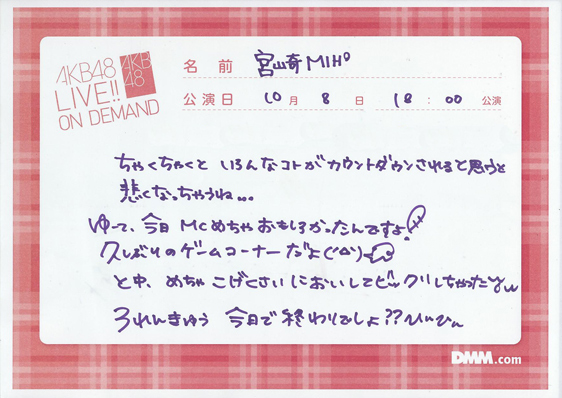 AKB48
LIVE!!
ON DEMAND
AKB
48
名前 宮崎MIHO
公演日 10月 8日 18:00 公演
ちゃくちゃくと いろんなコトがカウントダウンされると思うと
悲くなっちゃうね...
ゆって、今日 MCめちゃおもしろかったんですよ
久しぶりのゲームコーナーだよ
と中、めちゃ こげくさいにおいしてビックリしちゃったyω
3れんきゅう 今日で終わりでしょ??ひぃひん
DMM.com